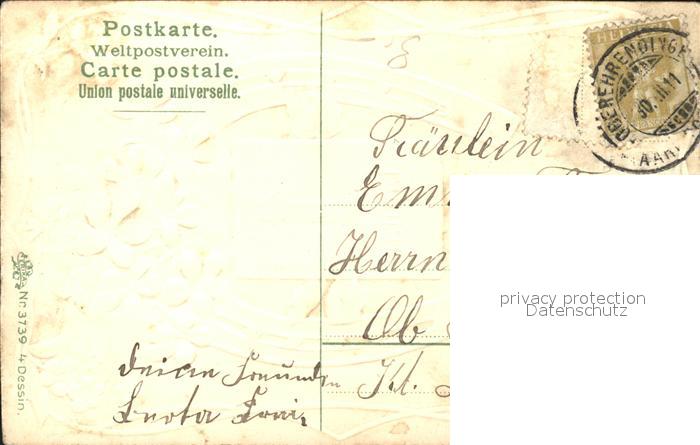 Postkarte.
Weltpostverein.
Carte postale.
Union postale universelle.
HELVETIA
OBEREHRENDINGEN
10. II. 11
(AAR
Fräulein
Em
Herrn
Ob
Kt.
deine Freundin
Nr. 3739 4 Dessin.
privacy protection
Datenschutz